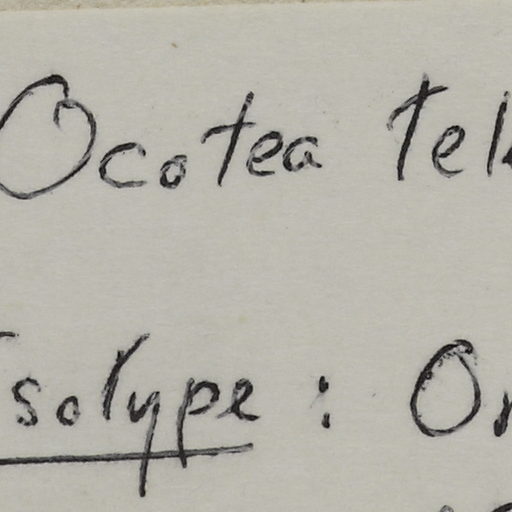 Ocotea tel
Isotype : Or